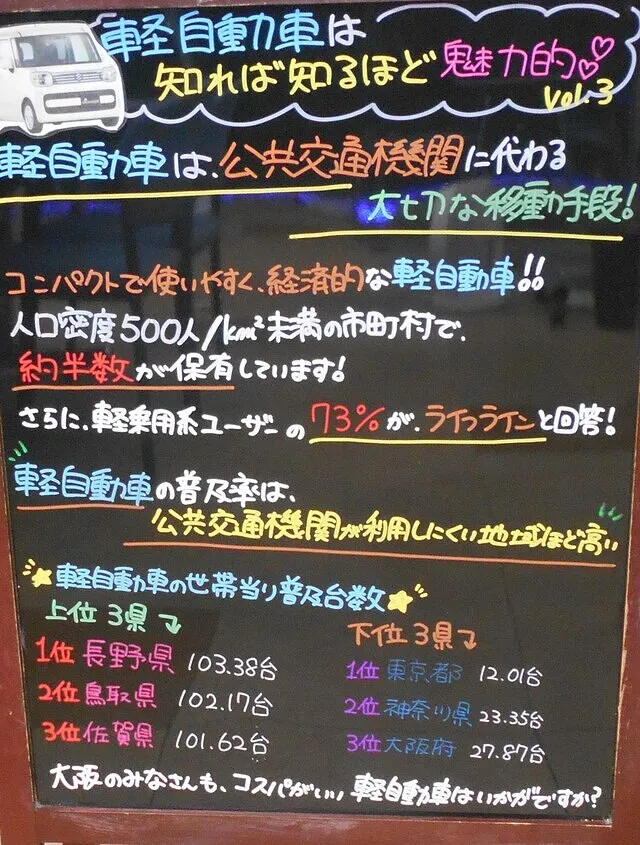 軽自動車は
知れば知るほど魅力的♡♡
vol.3
軽自動車は、公共交通機関に代わる
大切な移動手段!
コンパクトで使いやすく、経済的な軽自動車!!
人口密度500人/km²未満の市町村で、
約半数が保有しています!
さらに、軽乗用系ユーザーの73%が、ライフラインと回答!
軽自動車の普及率は、
公共交通機関が利用しにくい地域ほど高い
軽自動車の世帯当り普及台数
上位3県
1位 長野県 103.38台
2位 鳥取県 102.17台
3位 佐賀県 101.62台
下位3県
1位 東京都 12.01台
2位 神奈川県 23.35台
3位 大阪府 27.87台
大阪のみなさんも、コスパがいい、軽自動車はいかがですか?